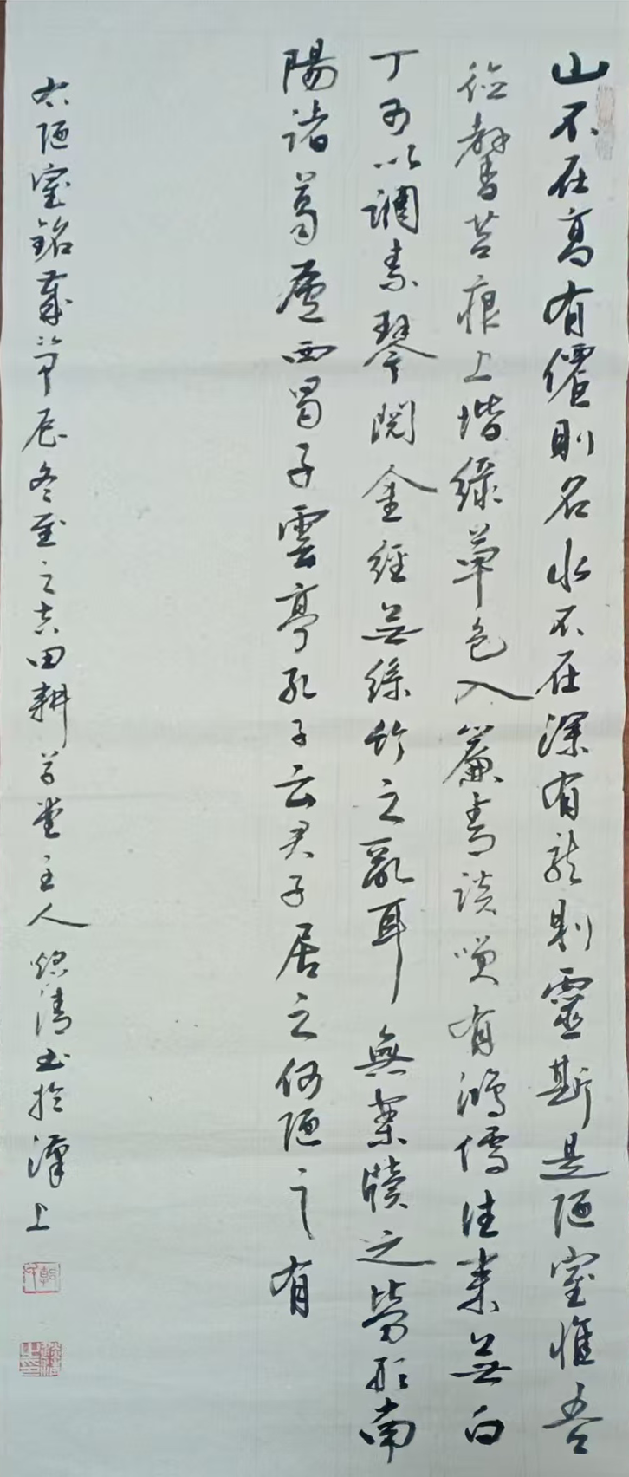 山不在高有僊則名水不在深有龍則靈斯是陋室惟吾
德馨苔痕上堦綠草色入簾青談笑有鴻儒往来無白
丁可以調素琴閱金經無絲竹之亂耳無案牘之勞形南
陽諸葛廬西蜀子雲亭孔子云君子居之何陋之有
右陋室銘歲辰冬至之吉田耕草堂主人清书於漢上